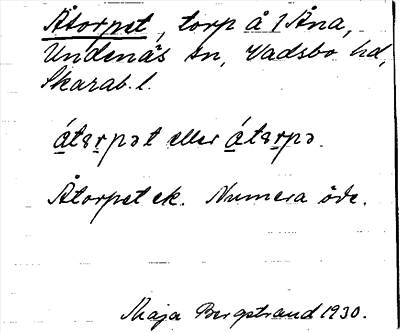 Åtorpet, torp å 1 Åna,
Undenäs sn, Vadsbo hd,
Skarab. l.
átɷrpət eller átɷrpə.
Åtorpet ek. Numera öde.
Maja Bergstrand 1930.